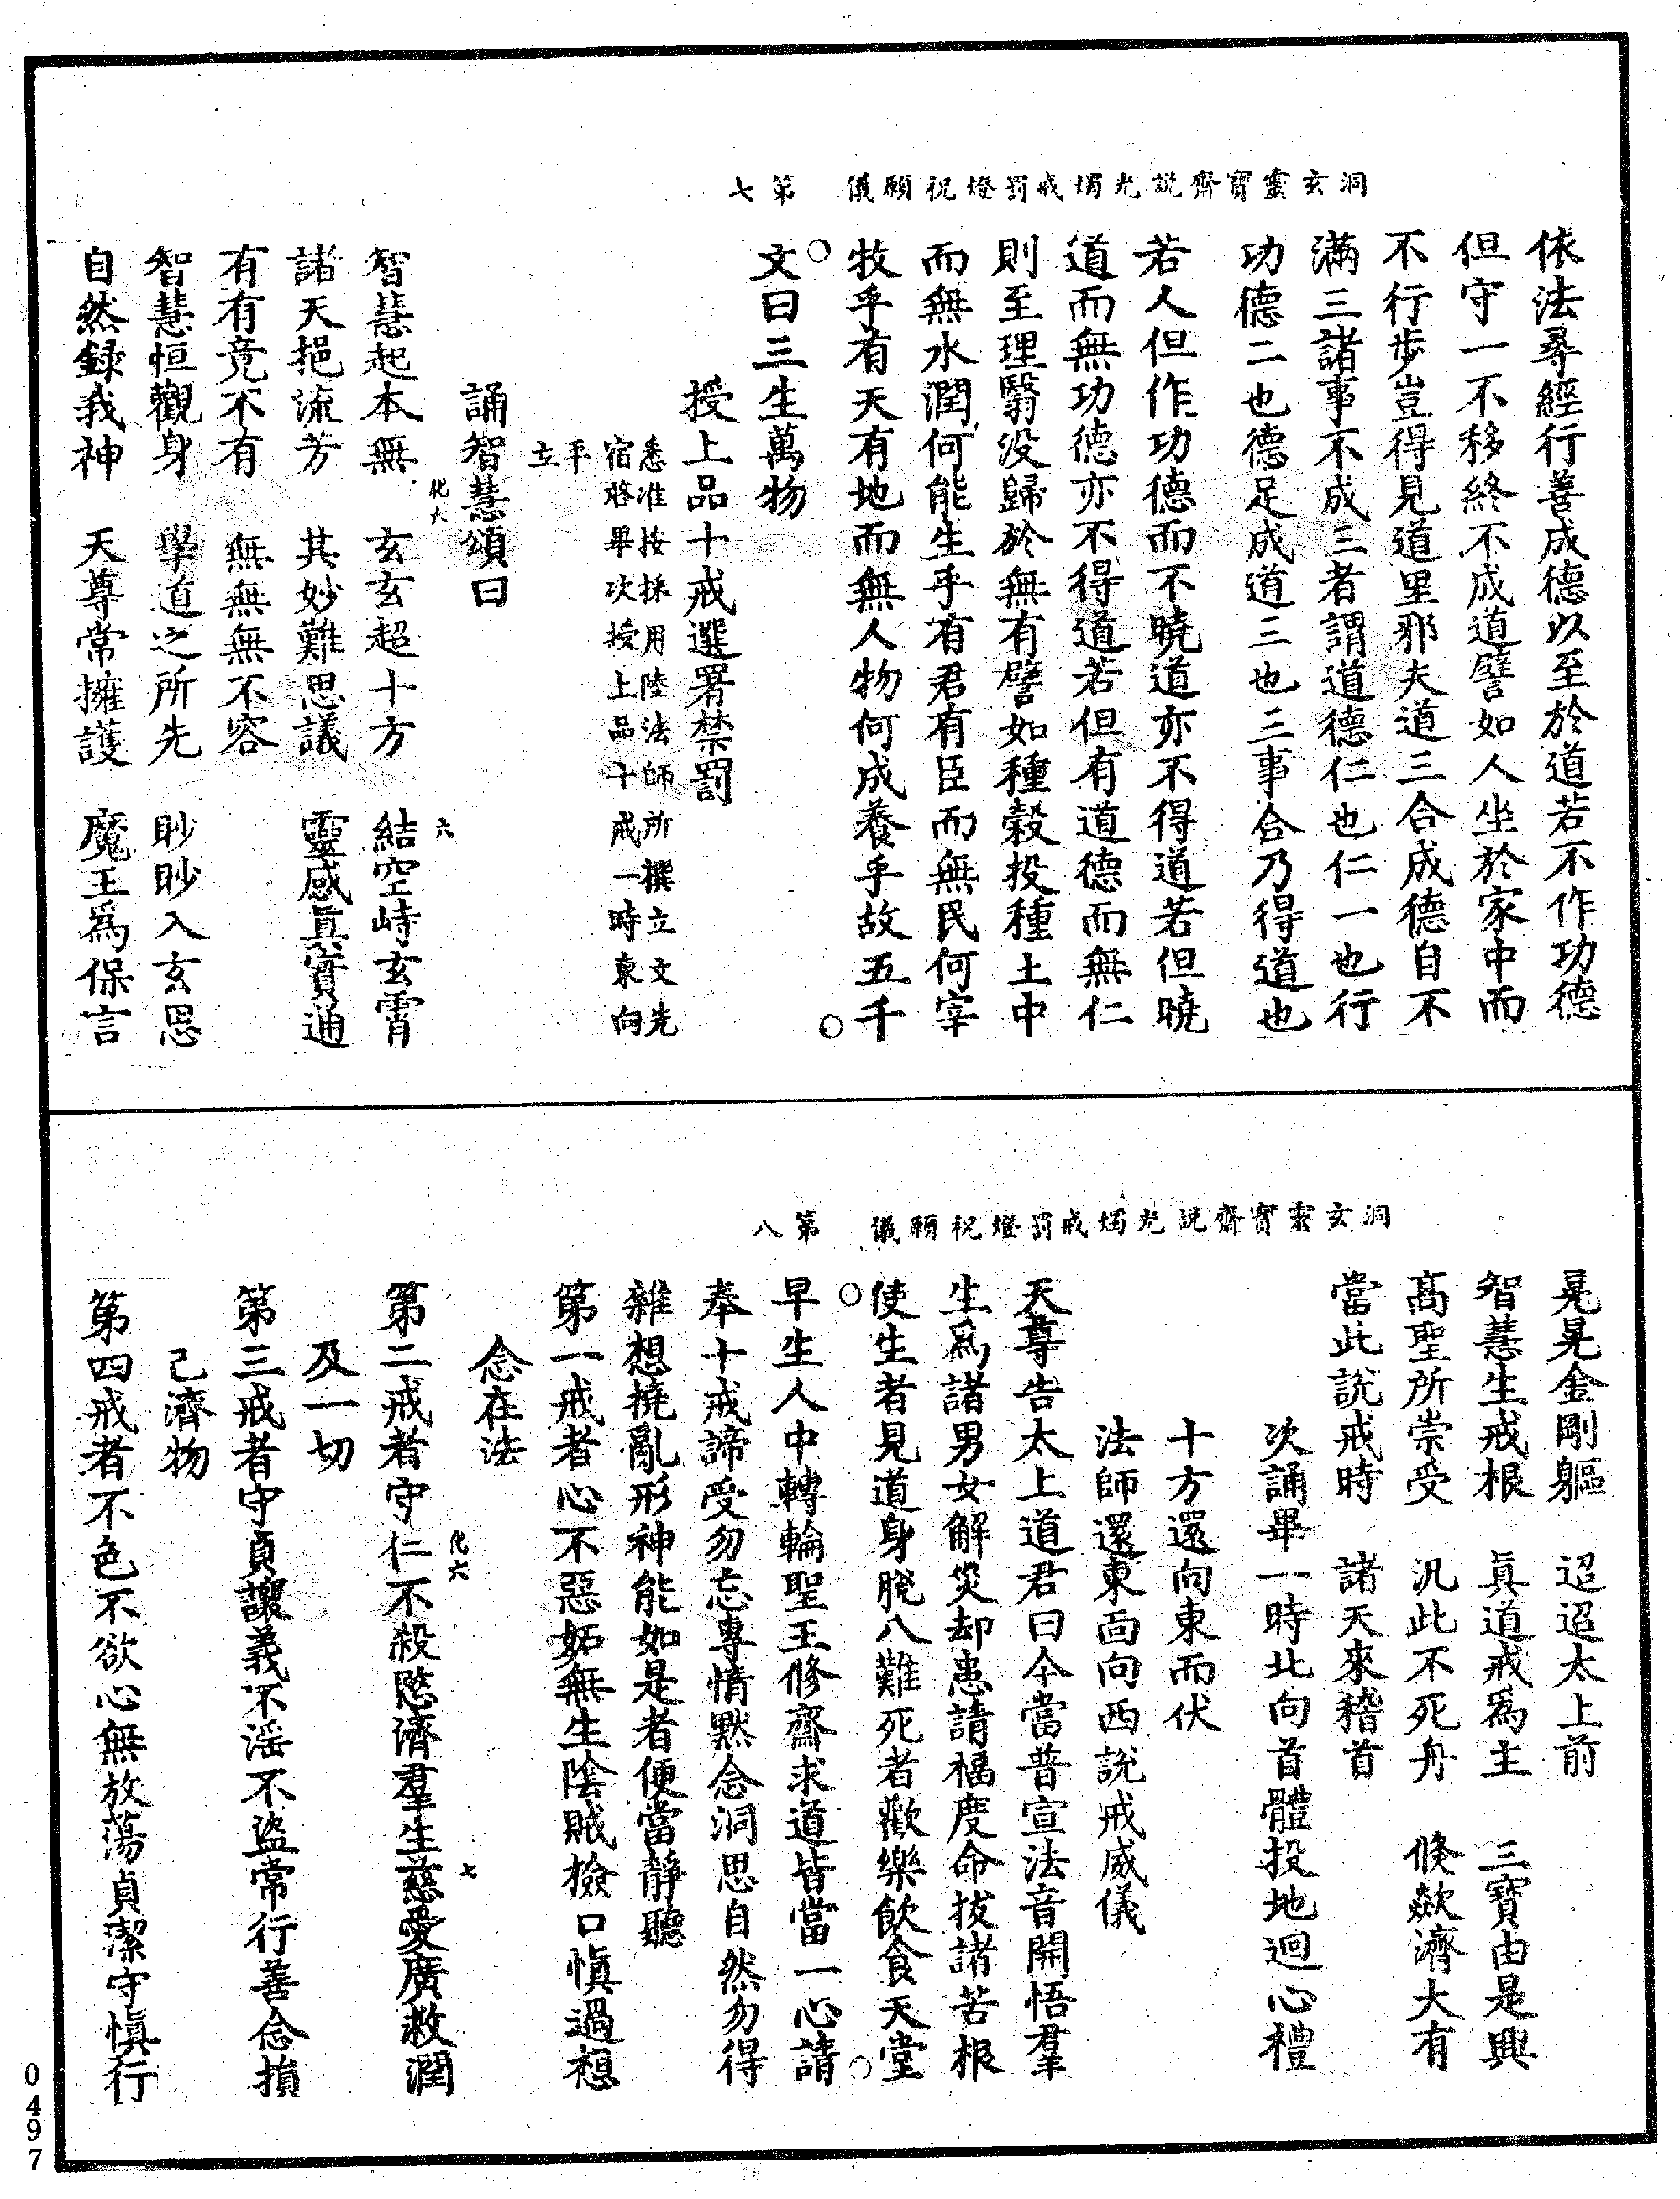 洞玄靈寶齋說光燭戒罰燈祝願儀　第七
依法尋經行善成德以至於道若不作功德
但守一不移終不成道譬如人坐於家中而
不行步豈得見道里邪夫道三合成德自不
滿三諸事不成三者謂道德仁也仁一也行
功德二也德足成道三也三事合乃得道也
若人但作功德而不曉道亦不得道若但曉
道而無功德亦不得道若但有道德而無仁
則至理翳没歸於無有譬如種穀投種土中
而無水潤何能生乎有君有臣而無民何宰
牧乎有天有地而無人物何成養乎故五千
文曰三生萬物
授上品十戒選署禁罰
悉准按採用陸法師所撰立文先
宿啓畢次授上品十戒一時東向
平
立
誦智慧頌曰
化六　六
智慧起本無　玄玄超十方　結空峙玄霄
諸天挹流芳　其妙難思議　靈感真實通
有有竟不有　無無無不容
智慧恒觀身　學道之所先　眇眇入玄思
自然録我神　天尊常擁護　魔王爲保言
洞玄靈寶齋說光燭戒罰燈祝願儀　第八
晃晃金剛軀　迢迢太上前
智慧生戒根　真道戒爲主　三寶由是興
高聖所崇受　汎此不死舟　倏歘濟大有
當此說戒時　諸天來稽首
次誦畢一時北向首體投地迴心禮
十方還向東而伏
法師還東面向西說戒威儀
天尊告太上道君曰今當普宣法音開悟羣
生爲諸男女解災却患請福度命拔諸苦根
使生者見道身脫八難死者歡樂飲食天堂
早生人中轉輪聖王修齋求道皆當一心請
奉十戒諦受勿忘專情默念洞思自然勿得
雜想撓亂形神能如是者便當靜聽
第一戒者心不惡妬無生陰賊檢口慎過想
念在法
化六　七
第二戒者守仁不殺愍濟羣生慈愛廣救潤
及一切
第三戒者守貞讓義不淫不盜常行善念損
己濟物
第四戒者不色不欲心無放蕩貞潔守慎行
0497